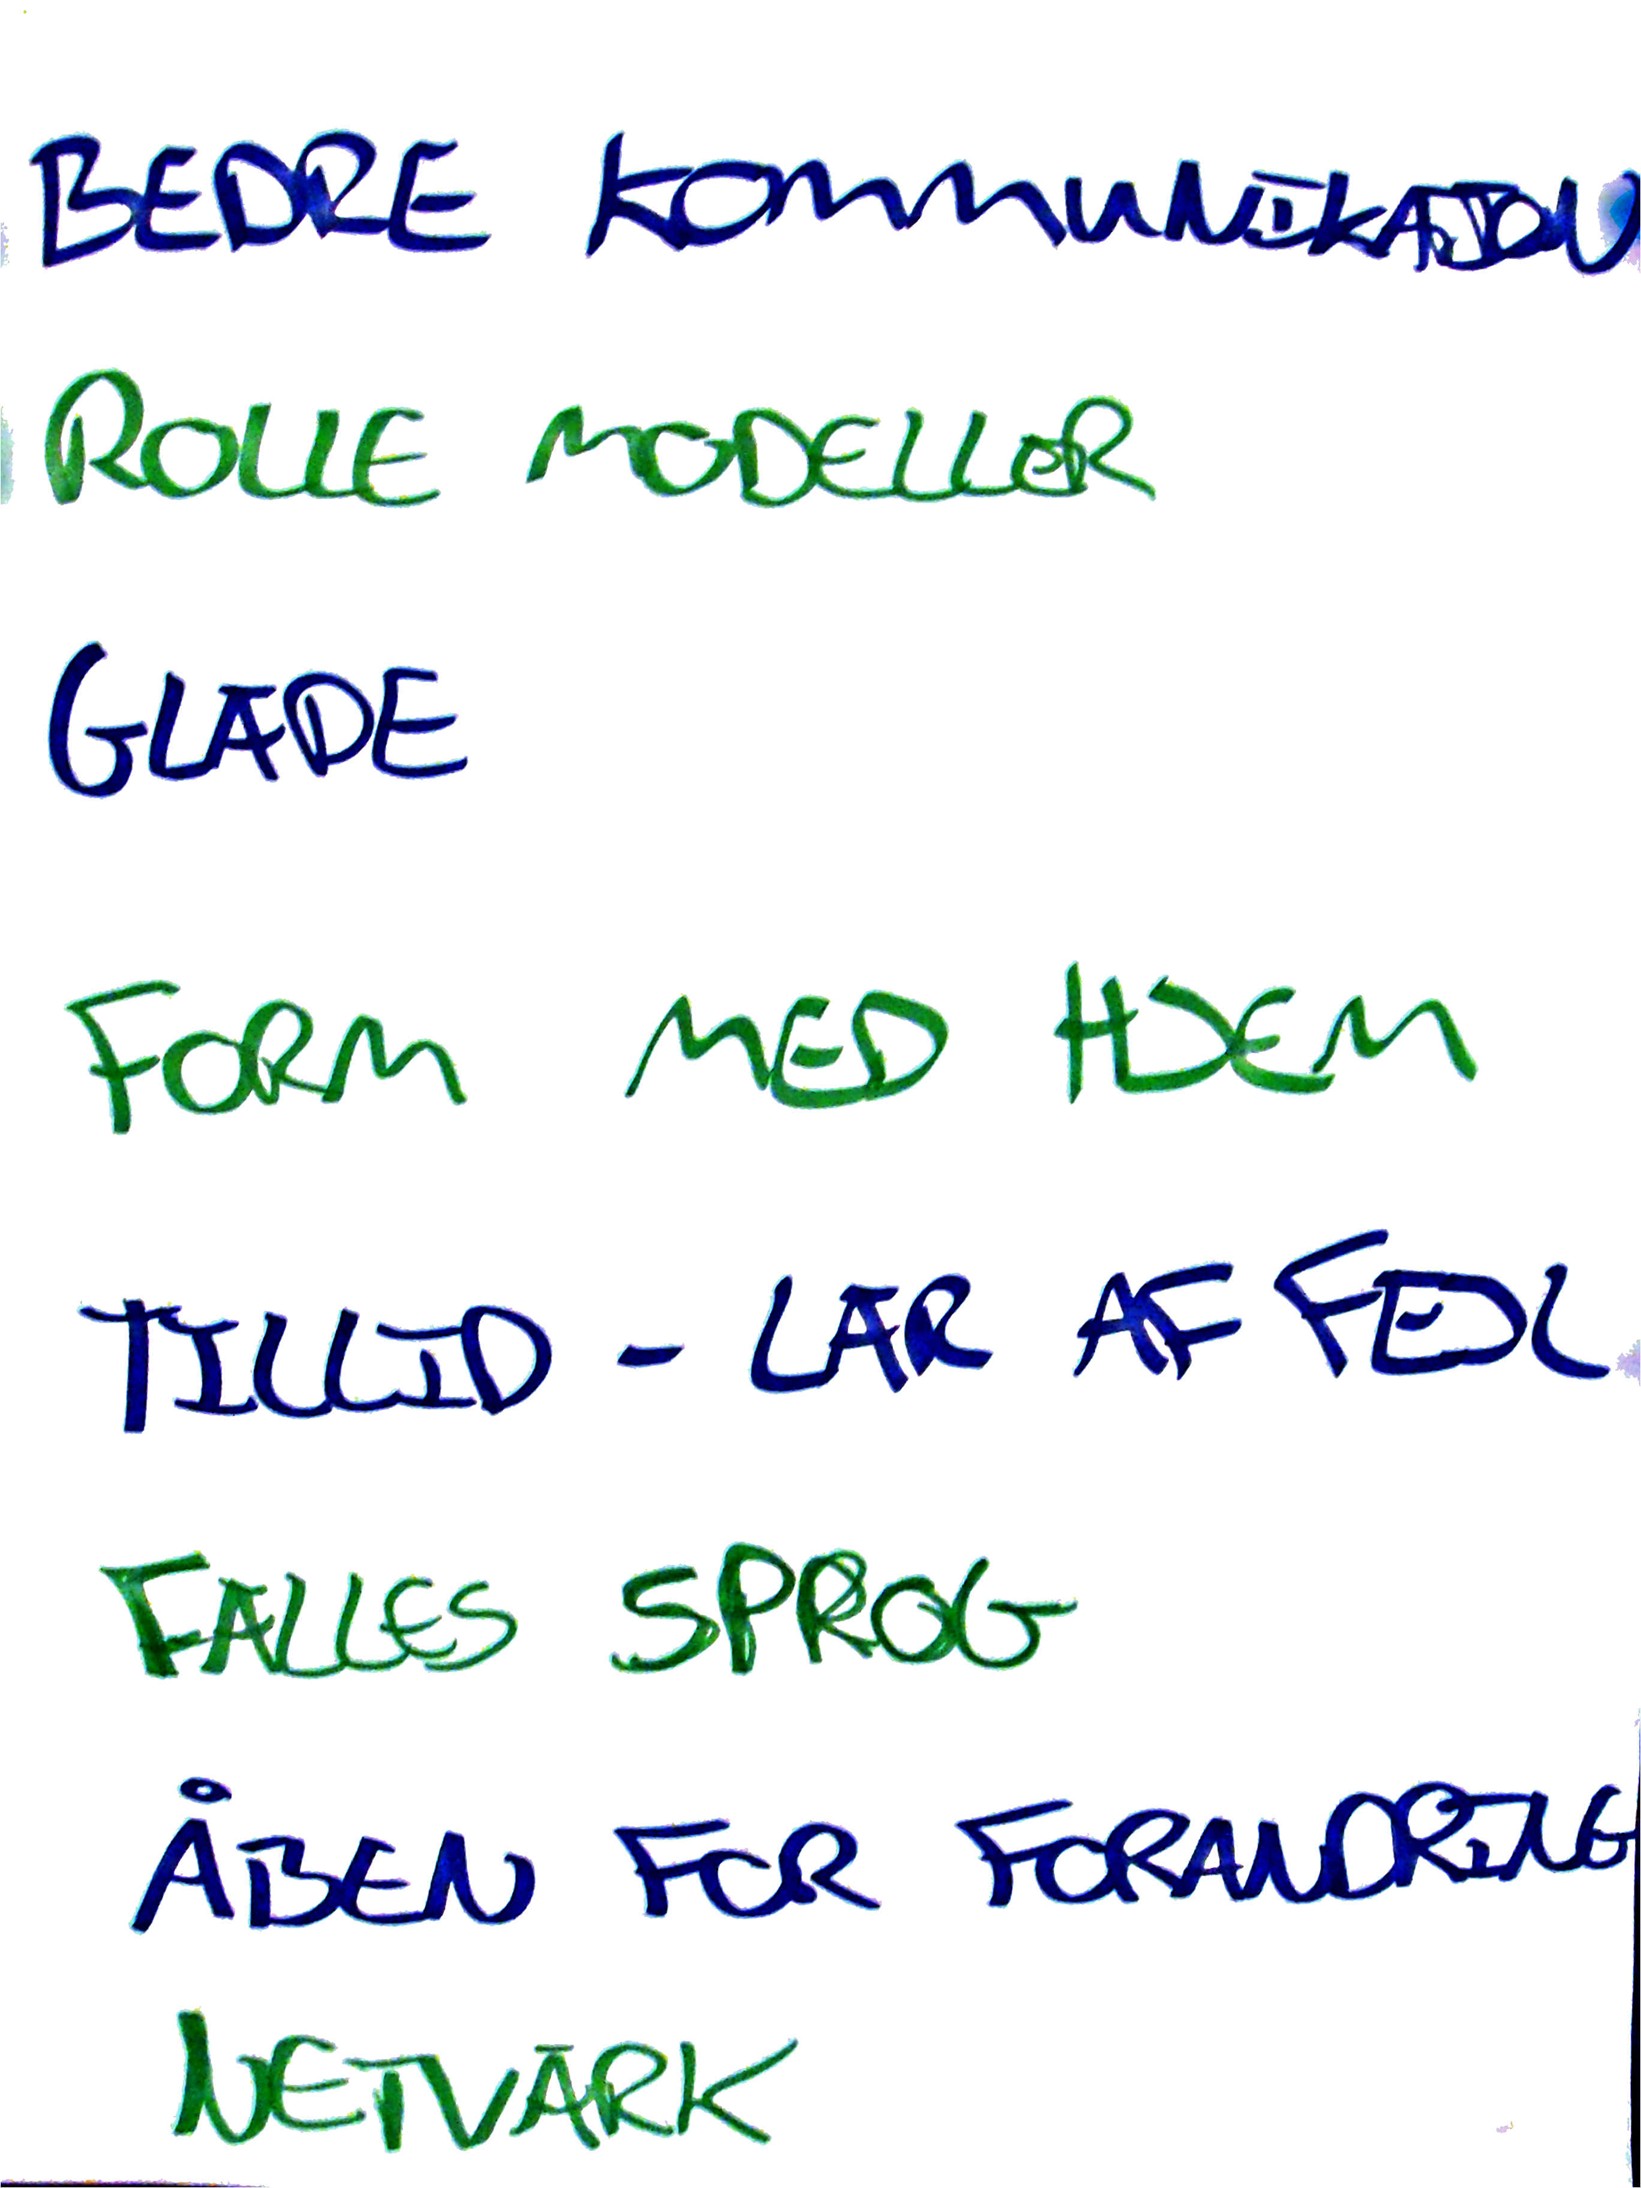 BEDRE KOMMUNIKATION
ROLLE MODELLER
GLADE
FORM MED HJEM
TILLID - LÄR AF FEJL
FÄLLES SPROG
ÅBEN FOR FORANDRING
NETVÄRK